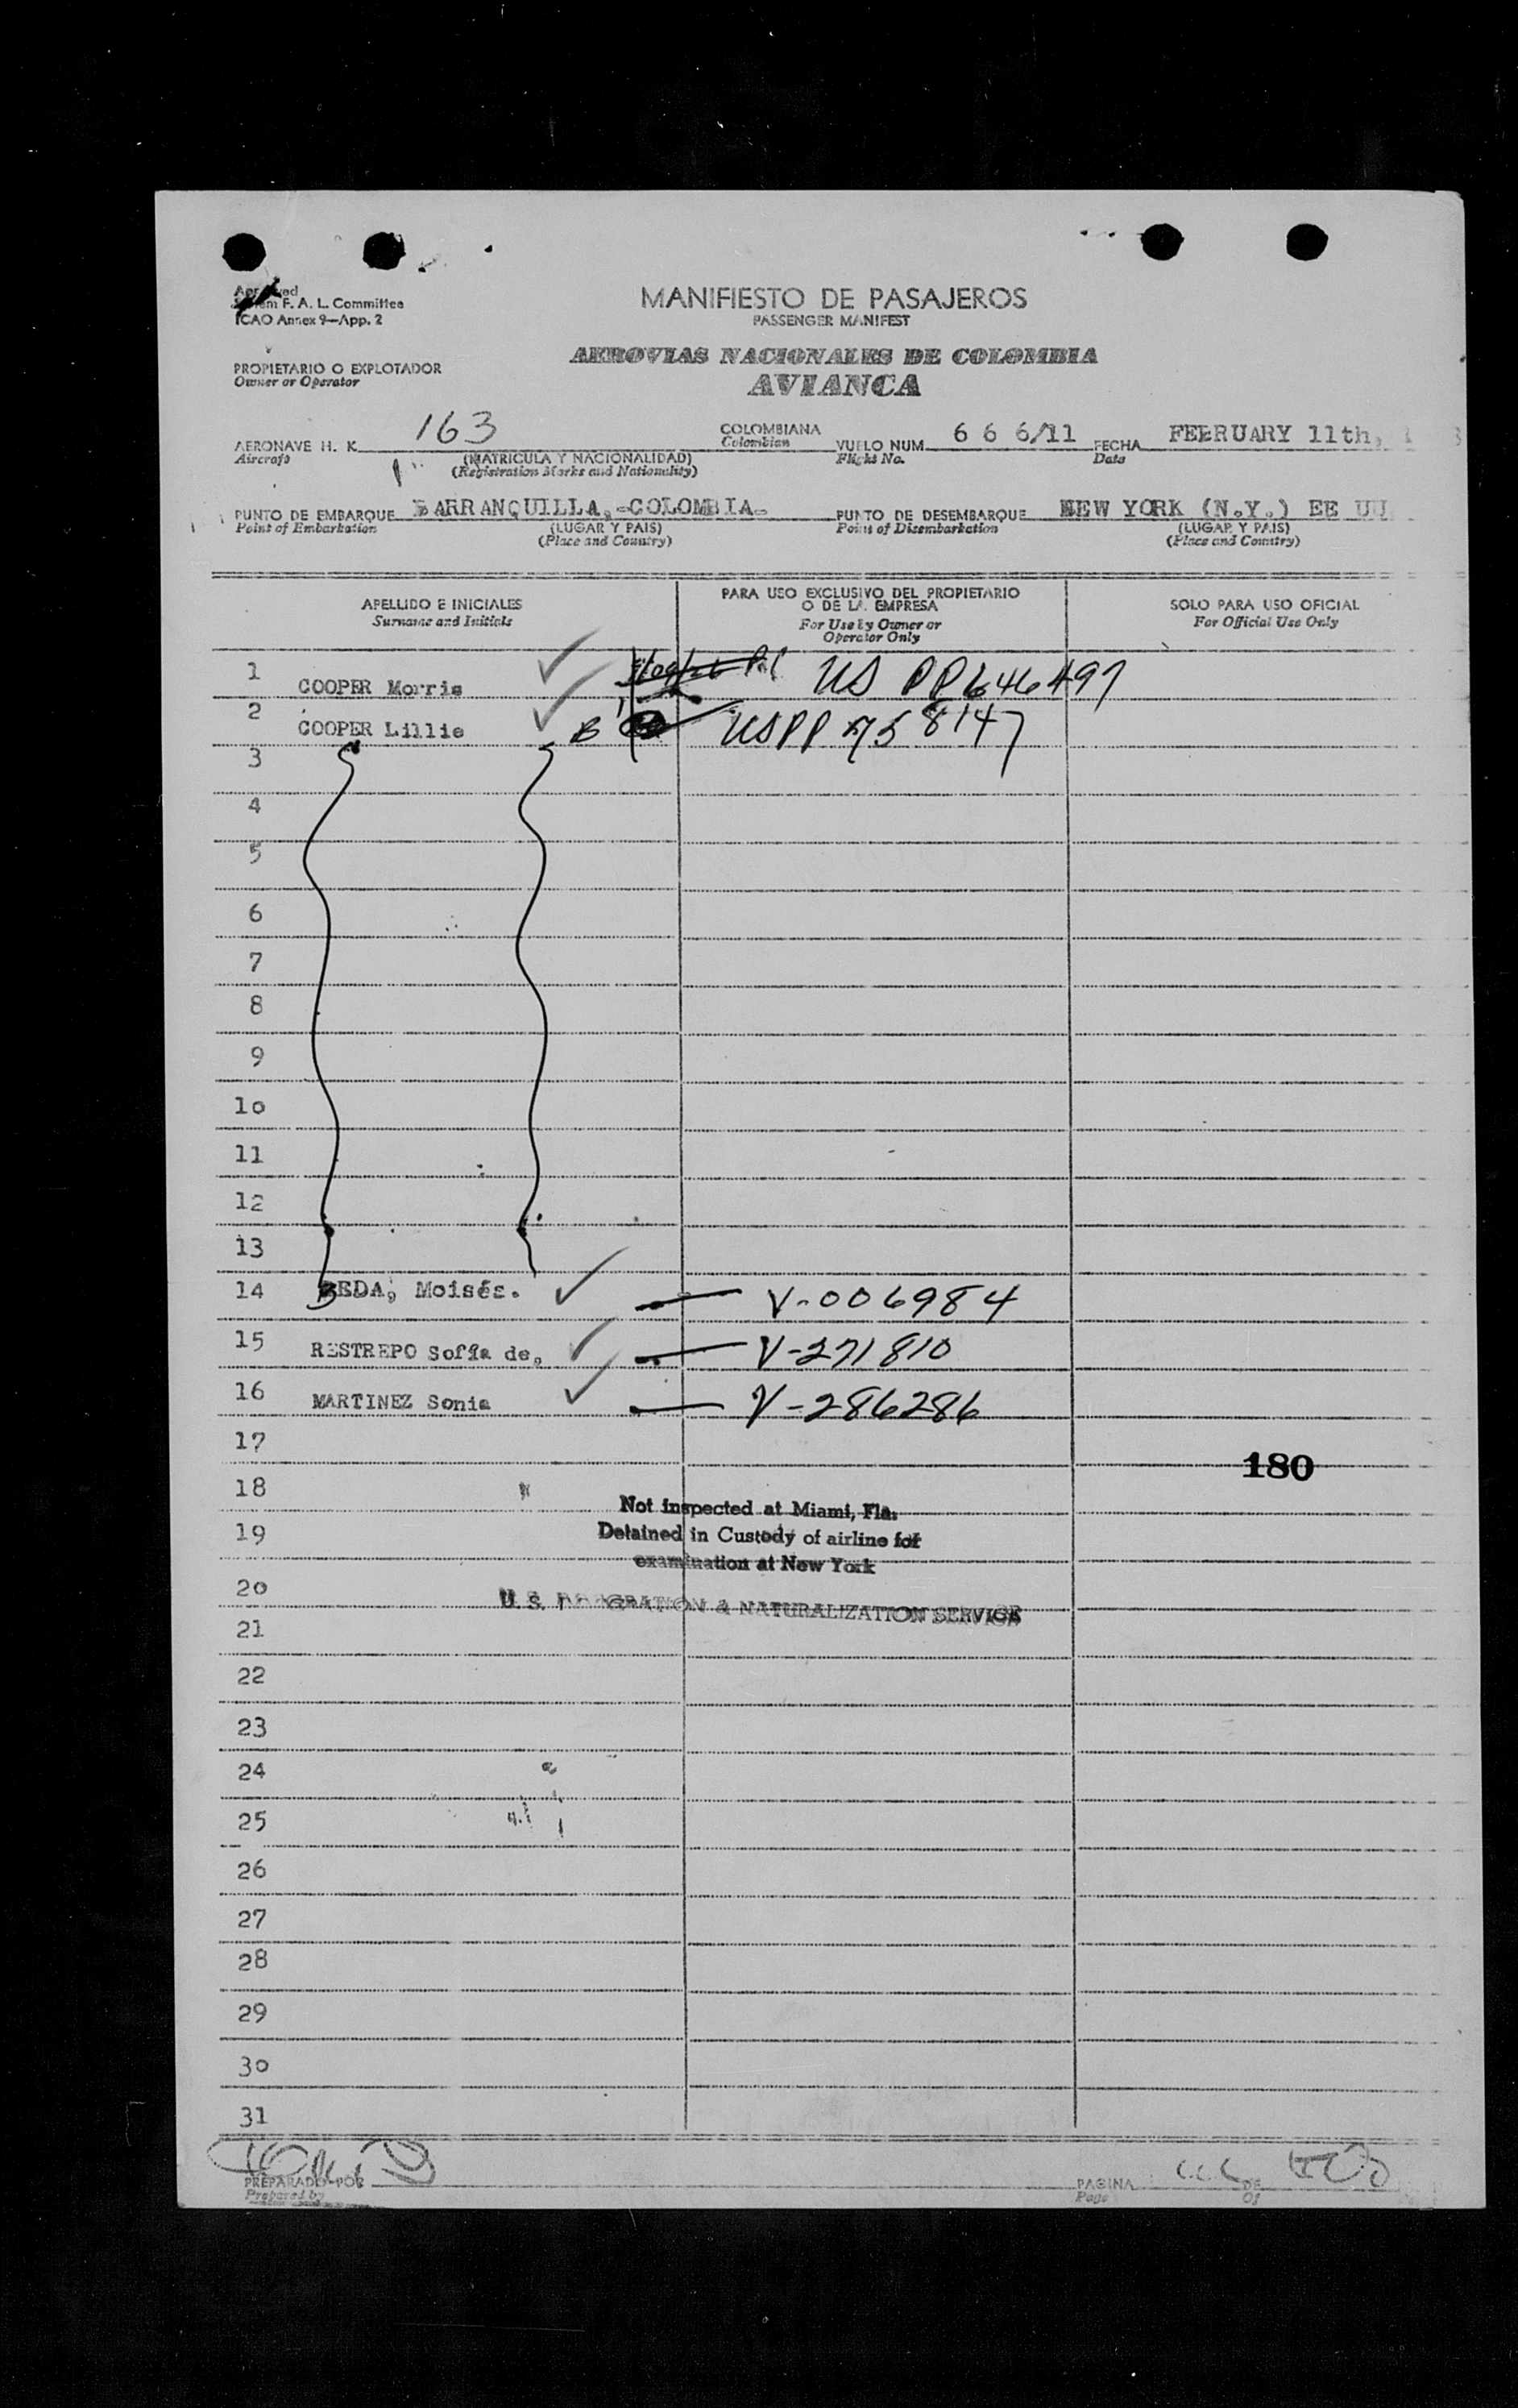 Approved
F. A. L. Committee
ICAO Annex 9—App. 2
MANIFIESTO DE PASAJEROS
PASSENGER MANIFEST
AEROVIAS NACIONALES DE COLOMBIA
AVIANCA
PROPIETARIO O EXPLOTADOR
Owner or Operator
AERONAVE H. K. 163 COLOMBIANA VUELO NUM. 6 6 6/11 FECHA FEBRUARY 11th,
Aircraft (MATRICULA Y NACIONALIDAD) Colombian Flight No. Date
(Registration Marks and Nationality)
PUNTO DE EMBARQUE BARRANQUILLA,-COLOMBIA- PUNTO DE DESEMBARQUE NEW YORK (N.Y.) EE UU
Point of Embarkation (LUGAR Y PAIS) Point of Disembarkation (LUGAR Y PAIS)
(Place and Country) (Place and Country)
APELLIDO E INICIALES PARA USO EXCLUSIVO DEL PROPIETARIO O DE LA EMPRESA SOLO PARA USO OFICIAL
Surname and Initials For Use by Owner or Operator Only For Official Use Only
1 COOPER Morris US PP 646497
2 COOPER Lillie B USPP 758147
3
4
5
6
7
8
9
10
11
12
13
14 BEDA, Moisés. V-006984
15 RESTREPO Sofía de, V-271810
16 MARTINEZ Sonia V-286286
17
180
18
Not inspected at Miami, Fla.
19 Detained in Custody of airline for
examination at New York
20
U. S. IMMIGRATION & NATURALIZATION SERVICE
21
22
23
24
25
26
27
28
29
30
31
PREPARADO POR PAGINA DE
Prepared by Page Of